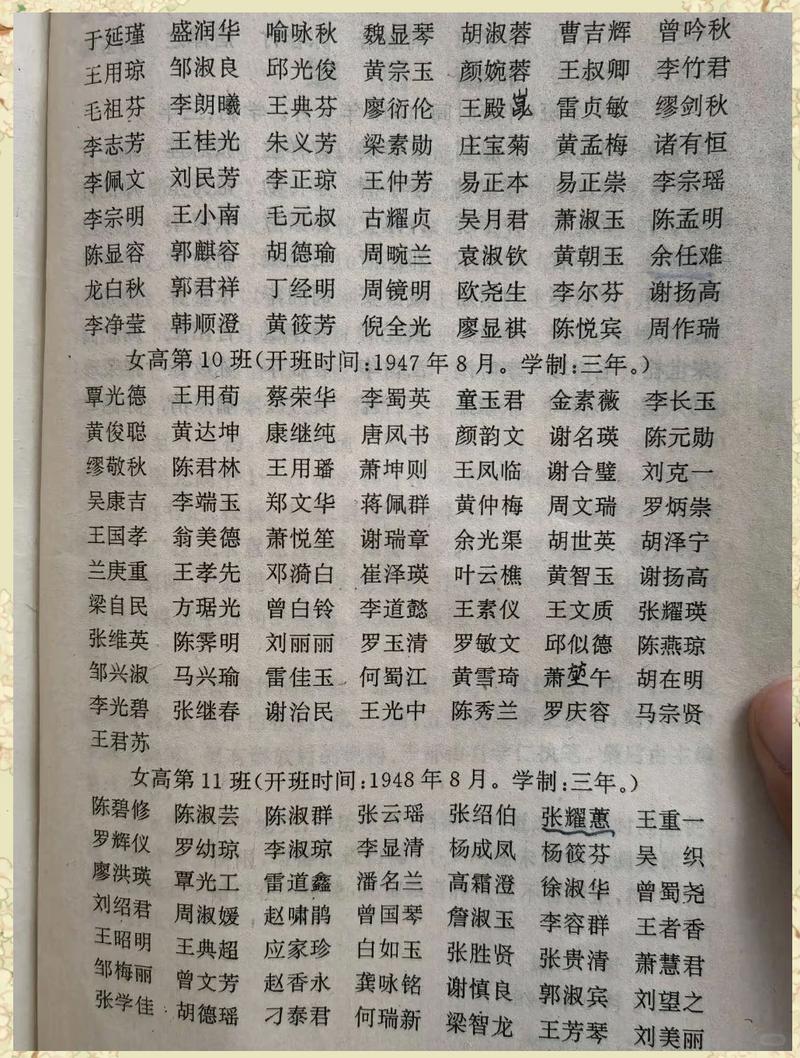 于延瑾 盛润华 喻咏秋 魏显琴 胡淑蓉 曹吉辉 曾吟秋
王用琼 邹淑良 邱光俊 黄宗玉 颜婉蓉 王叔卿 李竹君
毛祖芬 李朗曦 王典芬 廖衍伦 王殿崑 雷贞敏 缪剑秋
李志芳 王桂光 朱义芳 梁素勋 庄宝菊 黄孟梅 诸有恒
李佩文 刘民芳 李正琼 王仲芳 易正本 易正崇 李宗瑶
李宗明 王小南 毛元叔 古耀贞 吴月君 萧淑玉 陈孟明
陈显容 郭麒容 胡德瑜 周畹兰 袁淑钦 黄朝玉 余任难
龙白秋 郭君祥 丁经明 周镜明 欧尧生 李尔芬 谢扬高
李净莹 韩顺澄 黄筱芳 倪全光 廖显祺 陈悦宾 周作瑞
女高第10班(开班时间:1947年8月。学制:三年。)
覃光德 王用荀 蔡荣华 李蜀英 童玉君 金素薇 李长玉
黄俊聪 黄达坤 康继纯 唐凤书 颜韵文 谢名瑛 陈元勋
缪敬秋 陈君林 王用璠 萧坤则 王凤临 谢合璧 刘克一
吴康吉 李端玉 郑文华 蒋佩群 黄仲梅 周文瑞 罗炳崇
王国孝 翁美德 萧悦笙 谢瑞章 余光渠 胡世英 胡泽宁
兰庚重 王孝先 邓漪白 崔泽瑛 叶云樵 黄智玉 谢扬高
梁自民 方琚光 曾白铃 李道懿 王素仪 王文质 张耀瑛
张维英 陈霁明 刘丽丽 罗玉清 罗敏文 邱似德 陈燕琼
邹兴淑 马兴瑜 雷佳玉 何蜀江 黄雪琦 萧堃午 胡在明
李光碧 张继春 谢治民 王光中 陈秀兰 罗庆容 马宗贤
王君苏
女高第11班(开班时间:1948年8月。学制:三年。)
陈碧修 陈淑芸 陈淑群 张云瑶 张绍伯 张耀蕙 王重一
罗辉仪 罗幼琼 李淑琼 李显清 杨成凤 杨筱芬 吴 织
廖洪瑛 覃光工 雷道鑫 潘名兰 高霜澄 徐淑华 曾蜀尧
刘绍君 周淑媛 赵啸鹃 曾国琴 詹淑玉 李容群 王者香
王昭明 王典超 应家珍 白如玉 张胜贤 张贵清 萧慧君
邹梅丽 曾文芳 赵香永 龚咏铭 谢慎良 郭淑宾 刘望之
张学佳 胡德瑶 刁泰君 何瑞新 梁智龙 王芳琴 刘美丽